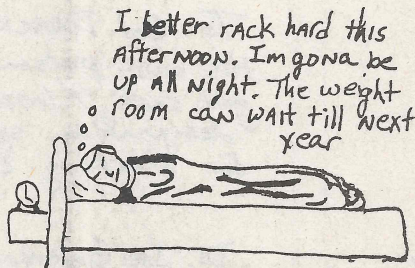 I better rack hard this
afternoon. Im gona be
up all night. The weight
room can wait till next
year